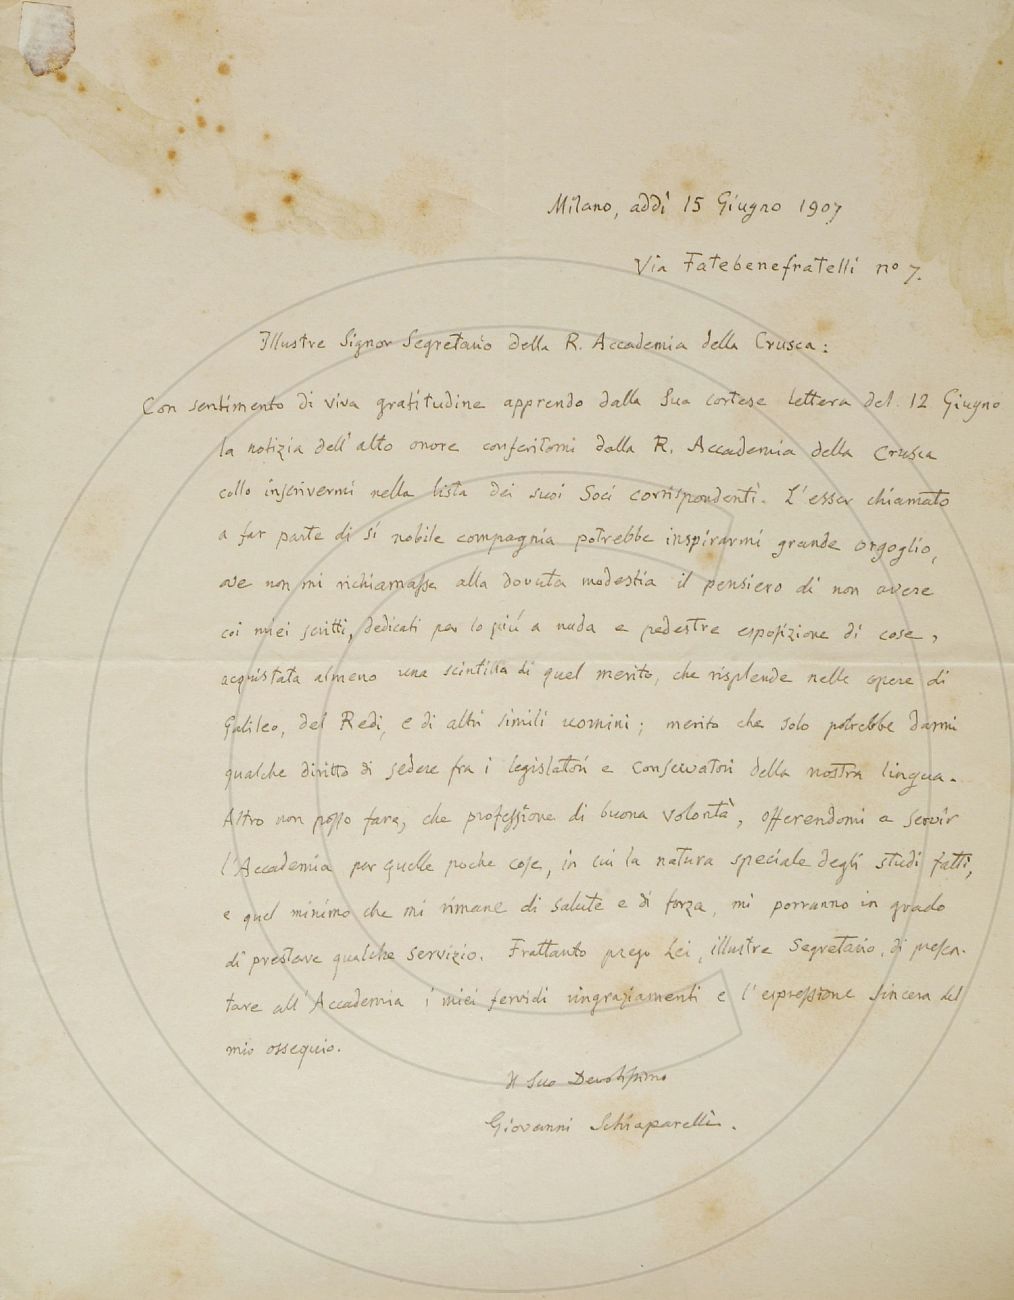 Milano, addì 15 Giugno 1907
Via Fatebenefratelli nº 7.
Illustre Signor Segretario della R. Accademia della Crusca:
Con sentimento di viva gratitudine apprendo dalla Sua cortese lettera del 12 Giugno
la notizia dell'alto onore conferitomi dalla R. Accademia della Crusca
collo inscrivermi nella lista dei suoi Soci corrispondenti. L'esser chiamato
a far parte di sì nobile compagnia potrebbe inspirarmi grande orgoglio,
ove non mi richiamasse alla dovuta modestia il pensiero di non avere
coi miei scritti, dedicati per lo più a nuda e pedestre esposizione di cose,
acquistata almeno una scintilla di quel merito, che risplende nelle opere di
Galileo, del Redi, e di altri simili uomini; merito che solo potrebbe darmi
qualche diritto di sedere fra i legislatori e conservatori della nostra lingua.
Altro non posso fare, che professione di buona volontà, offerendomi a servir
l'Accademia per quelle poche cose, in cui la natura speciale degli studi fatti,
e quel minimo che mi rimane di salute e di forza, mi porranno in grado
di prestare qualche servizio. Frattanto prego Lei, illustre Segretario, di presen-
tare all'Accademia i miei fervidi ringraziamenti e l'espressione sincera del
mio ossequio.
Il Suo Devotissimo
Giovanni Schiaparelli.